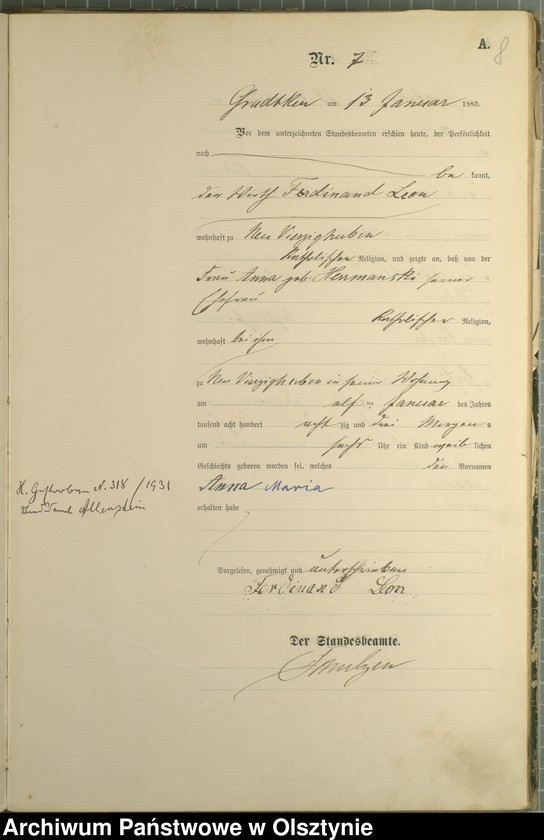 A.
8
Nr. 7
Gradtken am 13 Januar 1883.
Vor dem unterzeichneten Standesbeamten erschien heute, der Persönlichkeit
nach
be kannt,
der Wirth Ferdinand Leon
wohnhaft zu Neu Vierzighuben
Katholischer Religion, und zeigte an, daß von der
Frau Anna geb. Hermanski seiner
Ehefrau
Katholischer Religion,
wohnhaft bei ihm
zu Neu Vierzighuben in seiner Wohnung
am elf ten Januar des Jahres
tausend acht hundert acht zig und drei Morgens
um sechs Uhr ein Kind weib lichen
Geschlechts geboren worden sei, welches den Vornamen
Anna Maria
H. Gestorben N. 318/1931
Standesamt Allenstein
erhalten habe
Vorgelesen, genehmigt und unterschrieben
Ferdinand Leon
Der Standesbeamte.
Archiwum Państwowe w Olsztynie